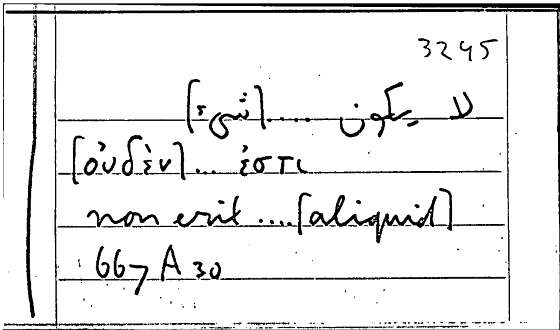 3245
لا يكون .... [شيء]
[οὐδὲν]... ἐστι
non erit .... [aliquid]
667 A 30